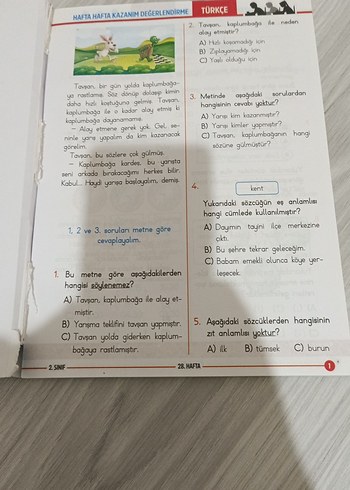 HAFTA HAFTA KAZANIM DEĞERLENDİRME
TÜRKÇE
Tavşan, bir gün yolda kaplumbağa-
ya rastlamış. Söz dönüp dolaşıp kimin
daha hızlı koştuğuna gelmiş. Tavşan,
kaplumbağa ile o kadar alay etmiş ki
kaplumbağa dayanamamış:
– Alay etmene gerek yok. Gel, se-
ninle yarış yapalım da kim kazanacak
görelim.
Tavşan, bu sözlere çok gülmüş.
– Kaplumbağa kardeş, bu yarışta
seni arkada bırakacağımı herkes bilir.
Kabul... Haydi yarışa başlayalım, demiş.
1, 2 ve 3. soruları metne göre
cevaplayalım.
1. Bu metne göre aşağıdakilerden
hangisi söylenemez?
A) Tavşan, kaplumbağa ile alay et-
miştir.
B) Yarışma teklifini tavşan yapmıştır.
C) Tavşan yolda giderken kaplum-
bağaya rastlamıştır.
2. Tavşan, kaplumbağa ile neden
alay etmiştir?
A) Hızlı koşamadığı için
B) Zıplayamadığı için
C) Yaşlı olduğu için
3. Metinde aşağıdaki sorulardan
hangisinin cevabı yoktur?
A) Yarışı kim kazanmıştır?
B) Yarışı kimler yapmıştır?
C) Tavşan, kaplumbağanın hangi
sözüne gülmüştür?
4.
kent
Yukarıdaki sözcüğün eş anlamlısı
hangi cümlede kullanılmıştır?
A) Dayımın tayini ilçe merkezine
çıktı.
B) Bu şehre tekrar geleceğim.
C) Babam emekli olunca köye yer-
leşecek.
5. Aşağıdaki sözcüklerden hangisinin
zıt anlamlısı yoktur?
A) ilk B) tümsek C) burun
2. SINIF
28. HAFTA
1